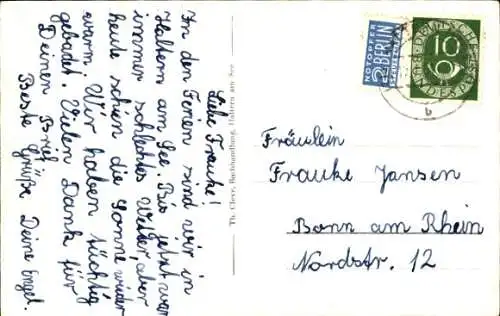 Liebe Frauke!
In den Ferien sind wir in
Haltern am See. Bis jetzt war
immer schlechtes Wetter, aber
heute schien die Sonne wieder
warm. Wir haben tüchtig
gebadet. Vielen Dank für
Deinen Brief
Beste Grüße Deine Engel.
Th. Cleve, Buchhandlung, Haltern am See
NOTOPFER
2 BERLIN
STEUERMARKE
DEUTSCHE
BUNDESPOST
10
b
Fräulein
Frauke Jansen
Bonn am Rhein
Nordstr. 12